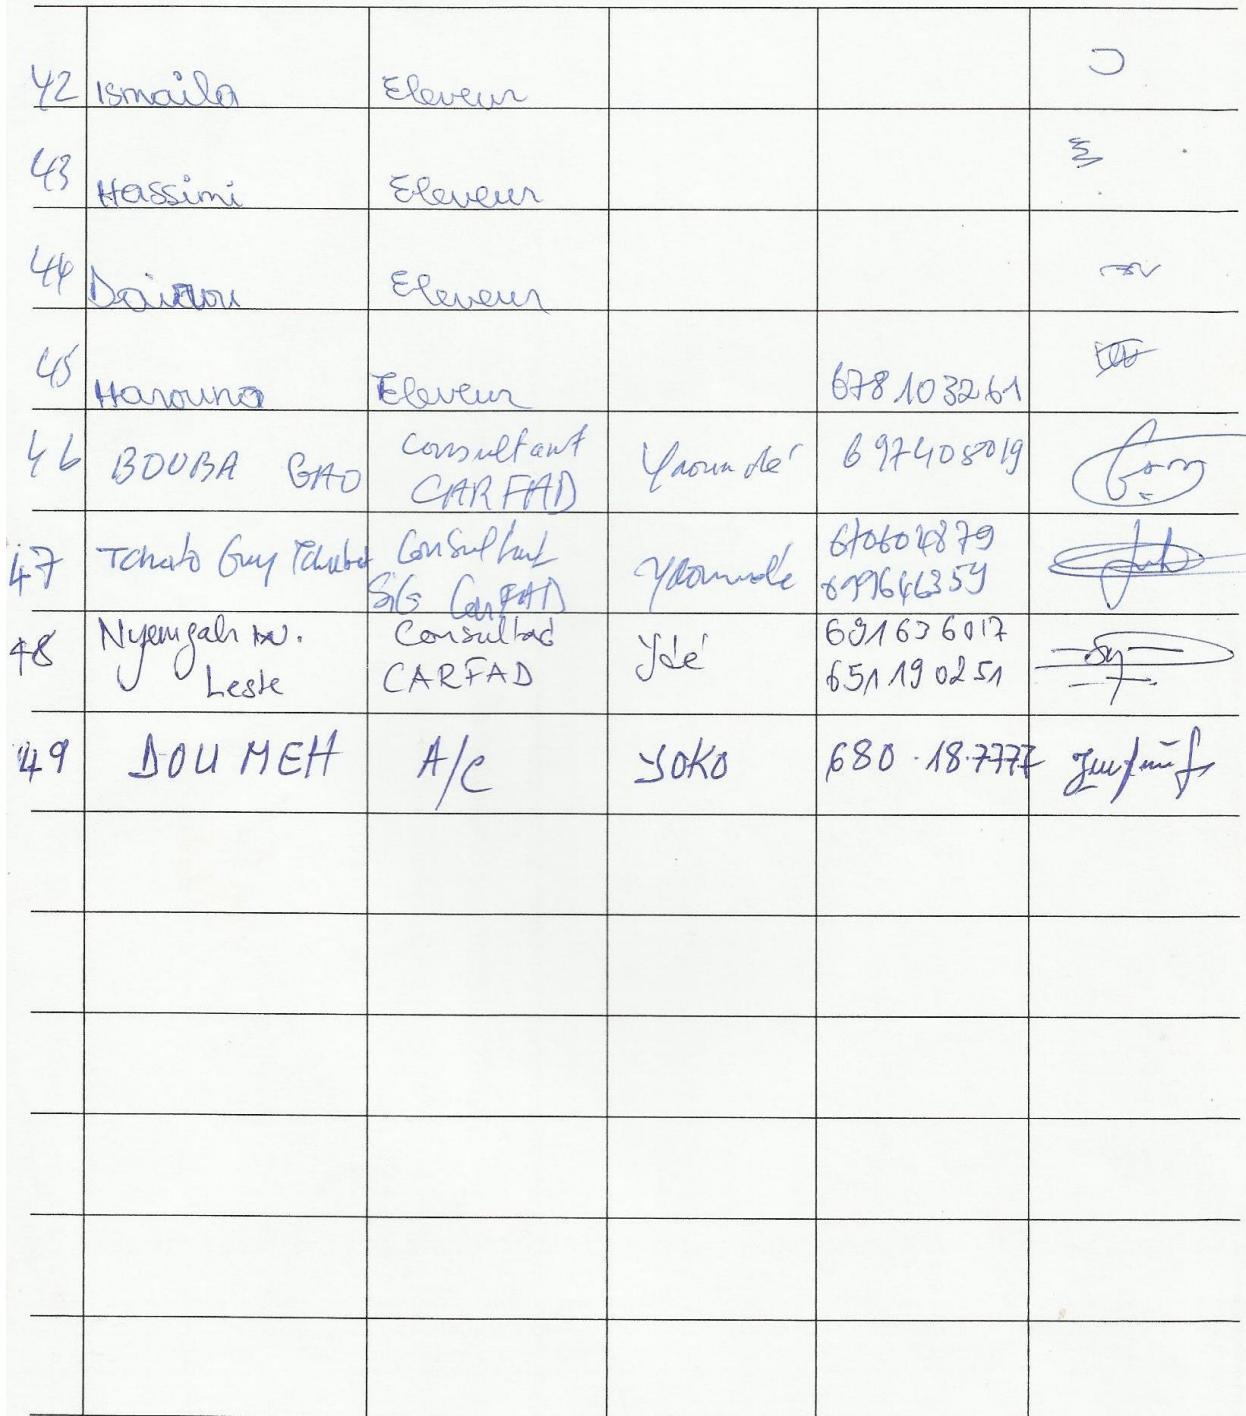 42 Ismaila Eleveur
43 Hassimi Eleveur
44 Daïrou Eleveur
45 Harouna Eleveur 678103261
46 BOUBA GAO Consultant CARFAD Yaoundé 697408019
47 Tchato Guy Consultant SIG CARFAD Yaoundé 699646359
48 Nyemgah W. Leslie Consultad CARFAD Ydé 691636017 651190251
49 DOUMEH A/C YOKO 680.18.7777